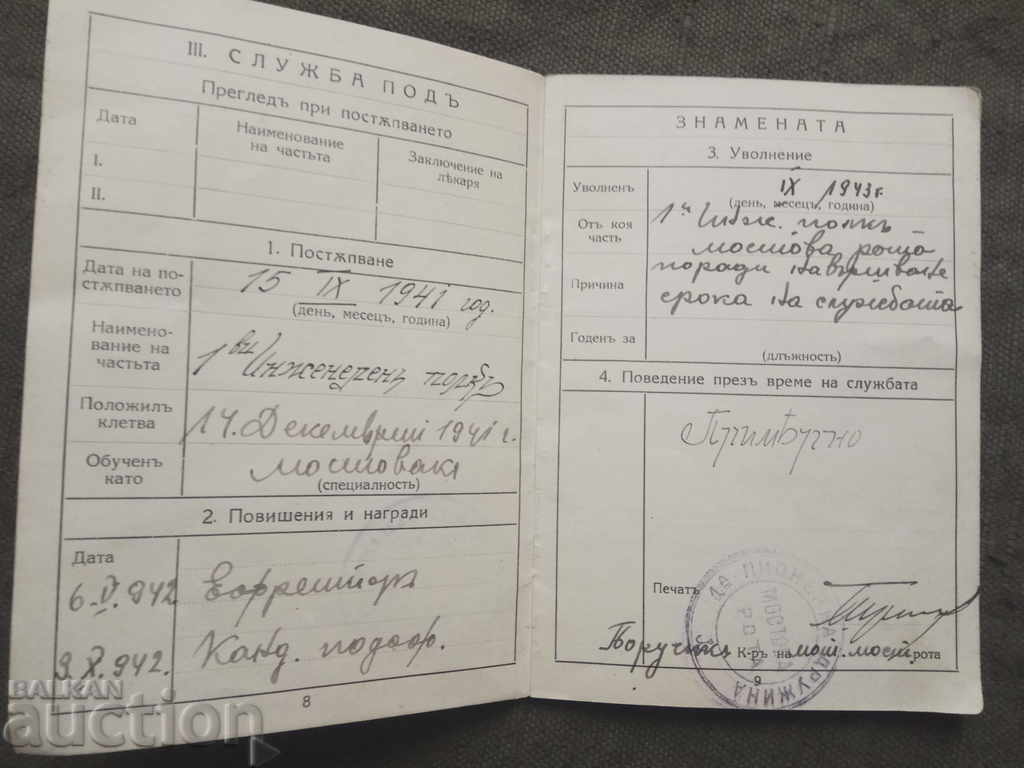 III. СЛУЖБА ПОДЪ
Прегледъ при постѫпването
Дата
Наименование
на частьта
Заключение на
лѣкаря
I.
II.
1. Постѫпване
Дата на по-
стѫпването
15 IX 1941 год.
(день, месецъ, година)
Наимено-
вание на
частьта
1ви Инженеренъ
Положилъ
клетва
14. Декемврий 1941 г.
Обученъ
като
мостовакъ
(специалность)
2. Повишения и награди
Дата
6.V.942 Ефрейторъ
9.X.942. Канд. подоф.
8
ЗНАМЕНАТА
3. Уволнение
Уволненъ
IX 1943 г.
(день, месецъ, година)
Отъ коя
часть
1й Инж. полкъ
мостова рота
Причина
поради навършване
срока на службата
Годенъ за
(длъжность)
4. Поведение презъ време на службата
Примѣрно
Печатъ
1а ПИОНЕРНА ДРУЖИНА
МОСТОВА
РОТА
Поручикъ К-ръ на мот. мост. рота
9
BALKAN
auction